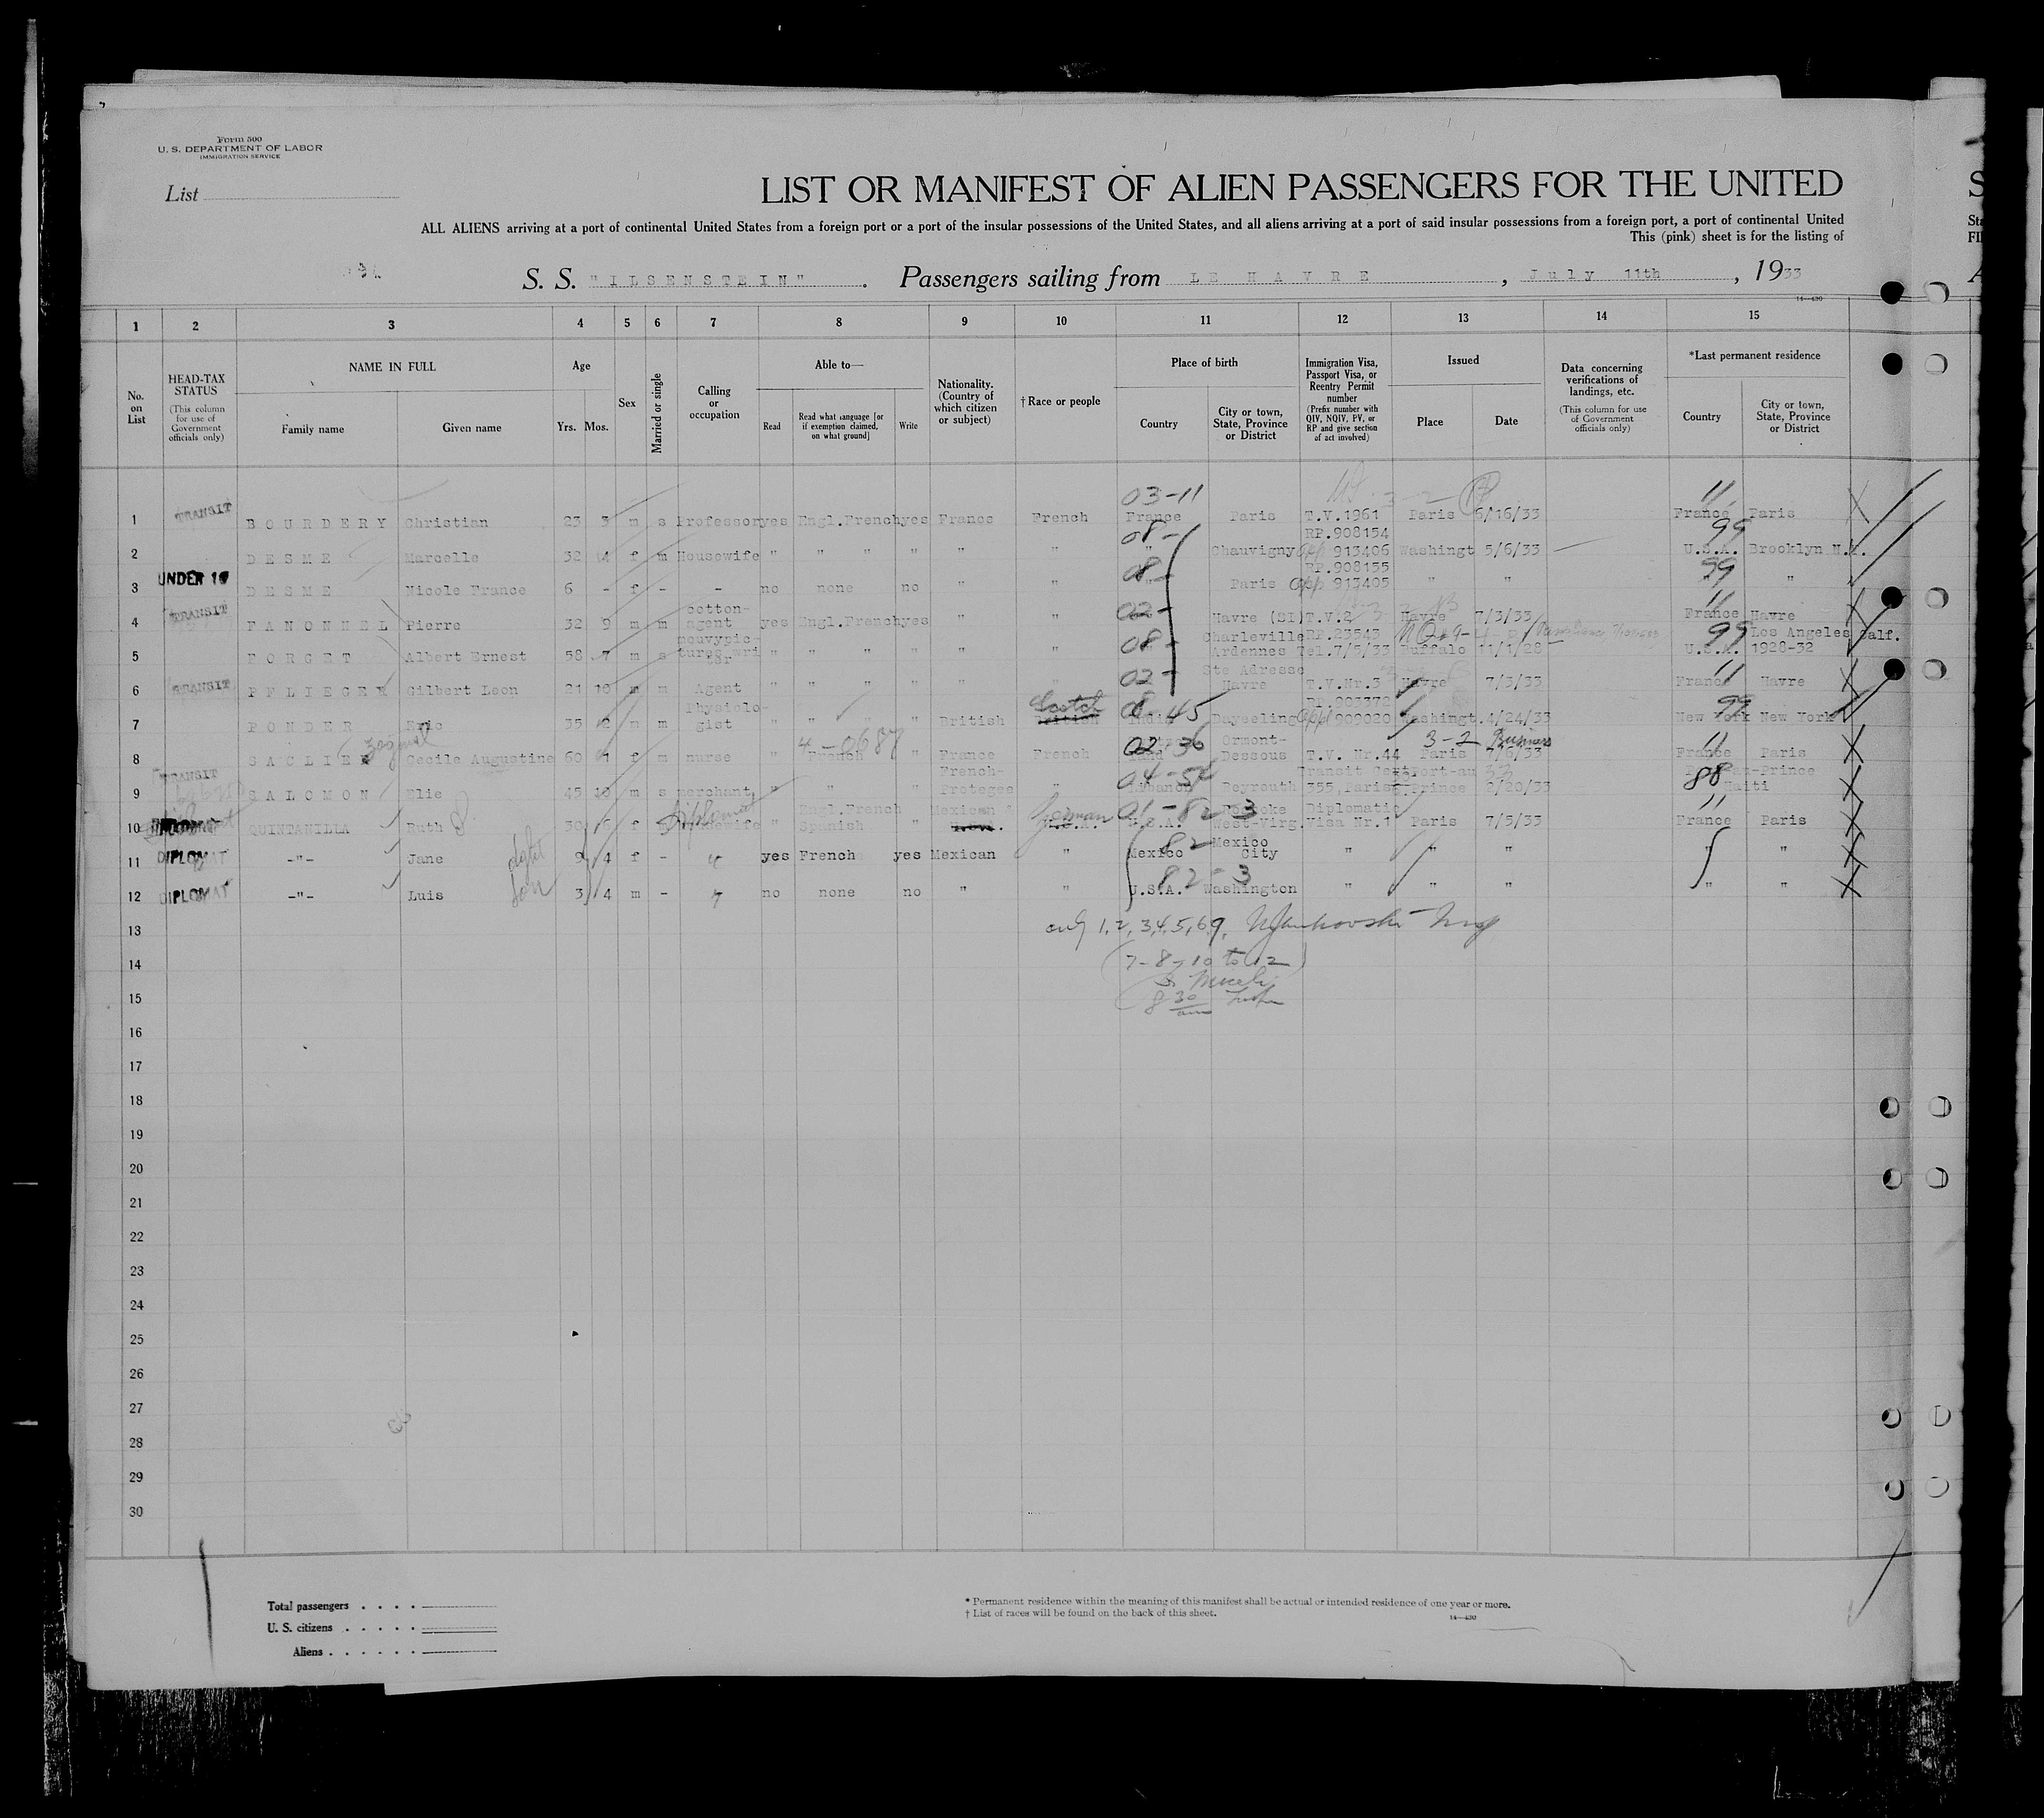 Form 500
U. S. DEPARTMENT OF LABOR
IMMIGRATION SERVICE
List
LIST OR MANIFEST OF ALIEN PASSENGERS FOR THE UNITED
ALL ALIENS arriving at a port of continental United States from a foreign port or a port of the insular possessions of the United States, and all aliens arriving at a port of said insular possessions from a foreign port, a port of continental United
This (pink) sheet is for the listing of
S. S. "ILSENSTEIN". Passengers sailing from LE HAVRE, July 11th, 1933
14—430
1 2 3 4 5 6 7 8 9 10 11 12 13 14 15
No. on List
HEAD-TAX STATUS (This column for use of Government officials only)
NAME IN FULL Family name Given name
Age Yrs. Mos.
Sex
Married or single
Calling or occupation
Able to— Read Read what language [or if exemption claimed, on what ground] Write
Nationality. (Country of which citizen or subject)
† Race or people
Place of birth Country City or town, State, Province or District
Immigration Visa, Passport Visa, or Reentry Permit number (Prefix number with QIV, NQIV, PV, or RP and give section of act involved)
Issued Place Date
Data concerning verifications of landings, etc. (This column for use of Government officials only)
*Last permanent residence Country City or town, State, Province or District
03-11 11
1 TRANSIT BOURDERY Christian 23 3 m s Professor yes Engl.French yes France French France Paris T.V.1961 Paris 6/16/33 France Paris
08- RP.908154 99
2 DESME Marcelle 32 4 f m Housewife " " " " " " " Chauvigny 913406 Washingt 5/6/33 U.S.A. Brooklyn N.Y.
08- RP.908155 99
3 UNDER 16 DESME Nicole France 6 - f - - no none no " " Paris app 913405 " " "
4 TRANSIT FANONNEL Pierre 32 9 m m cotton-agent yes Engl.French yes " " 02- Havre (SI) T.V.2 Havre 7/3/33 11 France Havre
5 FORGET Albert Ernest 58 7 m s " " " " " " 08- Charleville Ardennes RP.23543 Tel.7/5/33 Buffalo 11/1/28 99 U.S.A. Los Angeles Calf. 1928-32
6 TRANSIT PFLIEGER Gilbert Leon 21 10 m m Agent " " " " " " 02- Ste Adresse Havre T.V.Nr.3 Havre 7/3/33 11 France Havre
7 FONDER Eric 35 2 m m Physiologist " " " " British Scotch 08-45 India app 909020 Washingt. 4/24/33 99 New York New York
8 SACLIER Cecile Augustine 60 1 f m nurse " French " France French 02-36 Ormont-Dessous T.V. Nr.44 Paris 7/6/33 3-2 Business 11 France Paris
9 TRANSIT SALOMON Elie 45 10 m s merchant " " " French-Proteges " 04-54 Libanon Beyrouth 355,Paris Port-au Prince 2/20/33 88 Haiti
10 QUINTANILLA Ruth 30 6 f Diplomat " Engl.French Spanish " Mexican German 01-82-3 U.S.A. West-Virg. Diplomatic Visa Nr.1 Paris 7/5/33 11 France Paris
11 DIPLOMAT -"- Jane 9 4 f - yes French yes Mexican " 82 Mexico Mexico City " " " " "
12 DIPLOMAT -"- Luis 3 4 m - no none no " " 82-3 U.S.A. Washington " " " " "
13 only 1,2,3,4,5,6,9,
14 (7-8-10 to 12)
15 8 30 am
16
17
18
19
20
21
22
23
24
25
26
27
28
29
30
Total passengers
U. S. citizens
Aliens
* Permanent residence within the meaning of this manifest shall be actual or intended residence of one year or more.
† List of races will be found on the back of this sheet.
14—430